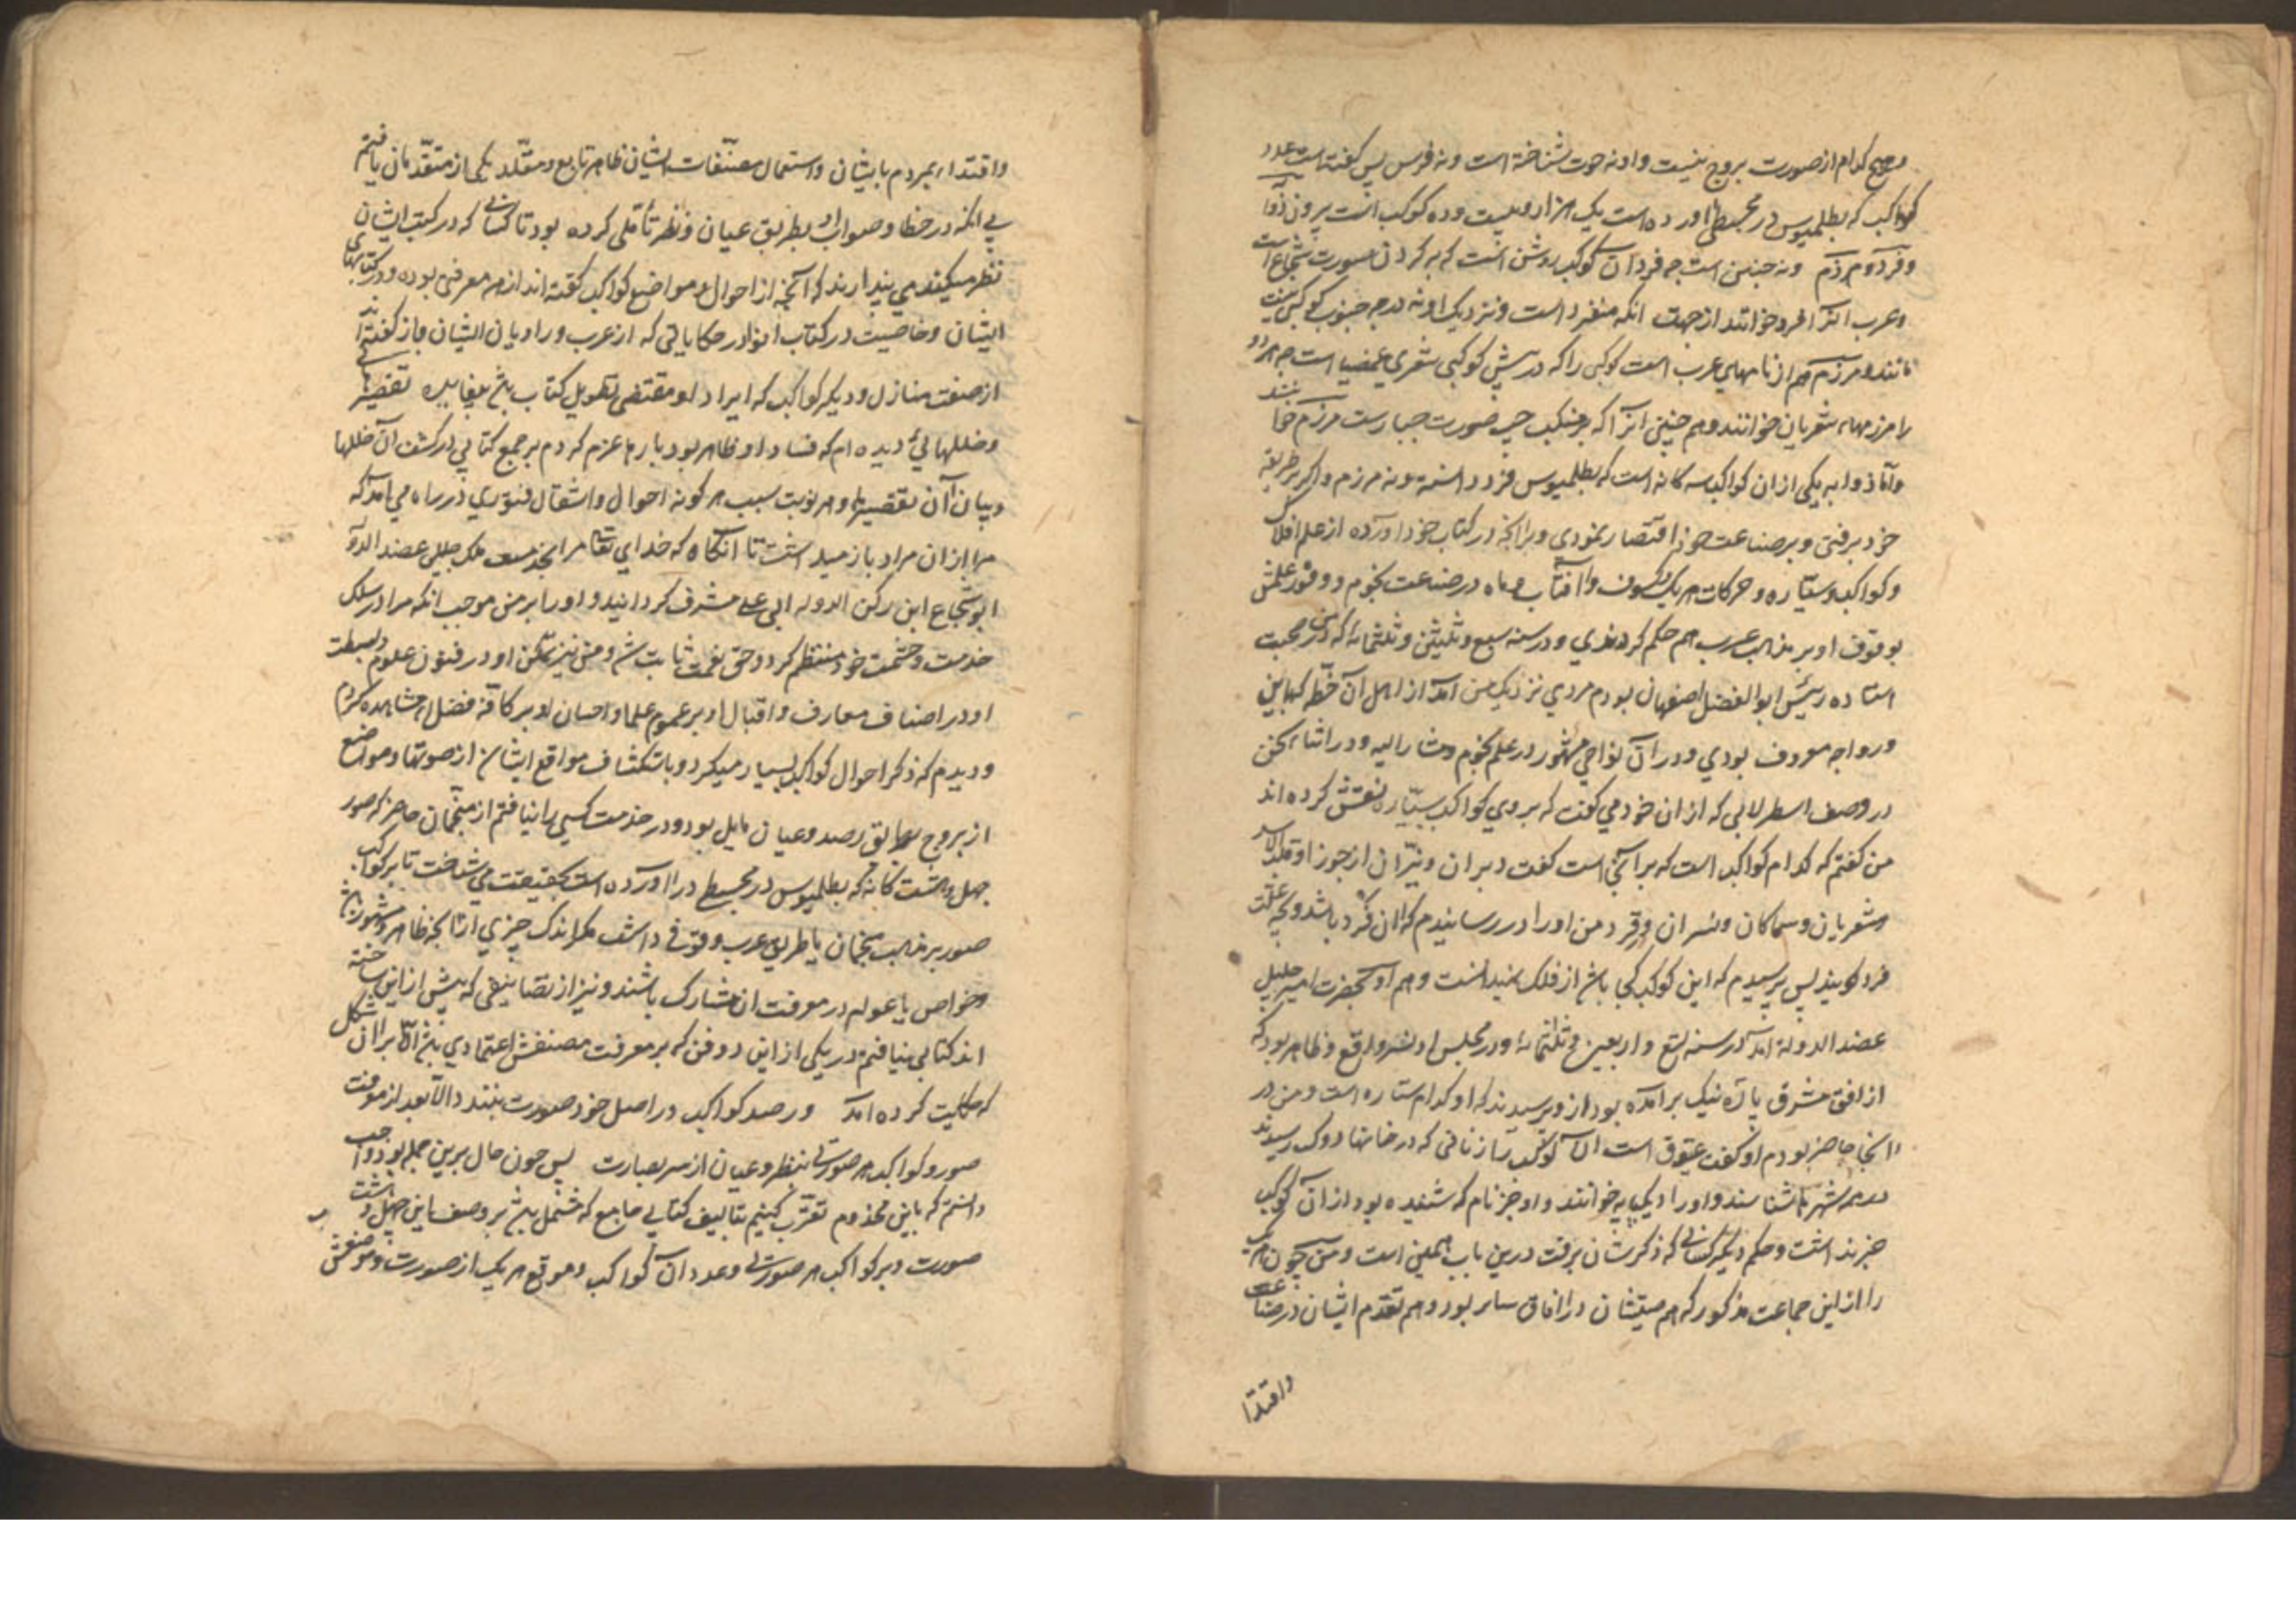 و هیچ کدام از صورت بروج نیست و او نه حوت شناخته است و نه فرس پس کفته است عدد
کواکب که بطلمیوس در مجسطی اورده است یک هزار و بیست و ده کوکب است بیرون ذوابه
و فرد و مرزم و نه چنین است چه فرد ان کوکب روشن است که بر کردن صورت شجاع است
و عرب انرا فرد خوانند از جهت انکه منفرد است و نزدیک او نه در جهة جنوب کوکبی نیست
مانند و مرزم هم از نامهای عرب است کوکبی را که در پیش کوکبی شعری غمیصا است چه هر دو
را مرزمهاء شعریان خوانند و هم چنین انرا که بر منکب چپ صورت جبارست مرزم خوانند
و اما ذوابه یکی از ان کواکب سه کانه است که بطلمیوس فرد دانسته و نه مرزم و اکر بر طریقه
خود برفتی و بر صناعت خود اقتصار نمودی و بر انچه در کتاب خود اورده از علم افلاک
و کواکب سیاره و حرکات هر یک و کسوف افتاب و ماه در صناعت نجوم و وفور علمش
بوقوف او بر مذاهب عرب هم حکم کردندی و در سنه سبع و ثلیثن و ثلثمائه که در صحبت
استاد رئیس ابو الفضل باصفهان بودم مردی نزدیک من امد از اهل ان خطه کهاین
و رواجه معروف بودی و در ان نواحی مشهور در علم نجوم و مشار الیه و در اثناء سخن
در وصف اسطرلابی که از ان خود می کفت که بروی کواکب سیاره نقش کرده اند
من کفتم که کدام کواکب است که بر انجا است کفت دبران و نیران از جوزا و قلب الاسد
و شعریان و سماکان و نسران و فرد من او را در رسانیدم که ان فرد باشد و بچه علت
فرد کویند پس پرسیدم که این کوکب کجا باشد از فلک نمیدانست و هم او بحضرت امیر جلیل
عضد الدوله امد در سنه تسع و اربعین و ثلثمائه و در مجلس او نسر واقع ظاهر بود که
از افق مشرق پاره نیک برامده بود از وی پرسیدند که او کدام ستاره است و من در
انجا حاضر بودم او کفت عیوق است الا کوکب را زنانی که در خانها دوک ریسند
در همه شهرها شناسند و او را دیک پایه خوانند و او جز نام که شنیده بود از ان کوکب
خبر نداشت و حکم دیکر کسانی که ذکرشان برفت درین باب همین است و من چون هر یک
را از این جماعت مذکور که هم صیتشان در افاق سایر بود و هم تقدم ایشان در صناعت
واقتدا
و اقتداء مردم بایشان و استعمال مصنفات ایشان ظاهر تابع و مقلد یکی از متقدمان یافتم
بی انکه در خطا و صواب او بطریق عیان و نظر تأملی کرده بود تا کسانی که در کتب ایشان
نظر میکنند می پندارند که انچه از احوال و مواضع کواکب کفته اند از سر معرفتی بوده و در کتابهای
ایشان و خاصیت در کتاب انوا در حکایاتی که از عرب و راویان ایشان باز کفته اند
از صفت منازل و دیکر کواکب که ایراد او مقتضی تطویل کتاب باشد بیفایده تقصیرها
و خللهایی دیده ام که فساد او ظاهر بود بارها عزم کردم بر جمع کتابی در کشف ان خللها
و بیان ان تقصیرها و هر نوبت سبب هر کونه احوال و اشغال فتوری در راه می امد که
مرا از ان مراد باز میداشت تا انکاه که خدای تعالی مرا بخدمت ملک جلیل عضد الدوله
ابو شجاع ابن رکن الدوله ابی علی مشرف کردانید و او را بر من موجب انکه مرا در سلک
خدمت و حشمت خود منتظم کرد و حق نعمت ثابت شد و من نیز تمکن او در فنون علوم و بسطت
او در اصناف معارف و اقبال او بر عموم علما و احسان او بر کافه فضلا مشاهده کردم
و دیدم که ذکر احوال کواکب بسیار میکرد و باستکشاف مواقع ایشان از صورتها و مواضع
از بروج بطریق رصد و عیان مایل بود و در خدمت کسی را نیافتم از منجمان حاضر که صور
چهل و هشت کانه که بطلمیوس در مجسطی در اورده است بحقیقت می شناخت تا بر کواکب
صور بر مذاهب منجمان یا طریق عرب وقوفی داشت مکر اندک چیزی از انچه ظاهر و مشهور باشد
و خواص یا عوام در معرفت ان مشارک باشند و نیز از تصانیفی که پیش از این ساخته
اند کتابی نیافتم در یکی از این دو فن که بر معرفت مصنفش اعتمادی باشد الا بر ان شکل
که حکایت کرده امد و رصد کواکب در اصل خود صورت نبندد الا بعد از معرفت
صور و کواکب هر صورتی بنظر و عیان از سر بصارت پس چون حال برین جمله بود واجب
دانستم که باین مخدوم تقرب کنیم بتالیف کتابی جامع که مشتمل باشد بر وصف این چهل و هشت
صورت و بر کواکب هر صورتی و عدد ان کواکب و موقع هر یک از صورت و موضعش